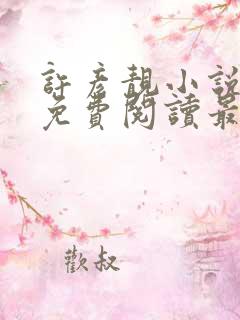 許彥靚小說
免費閱讀最
歡叔